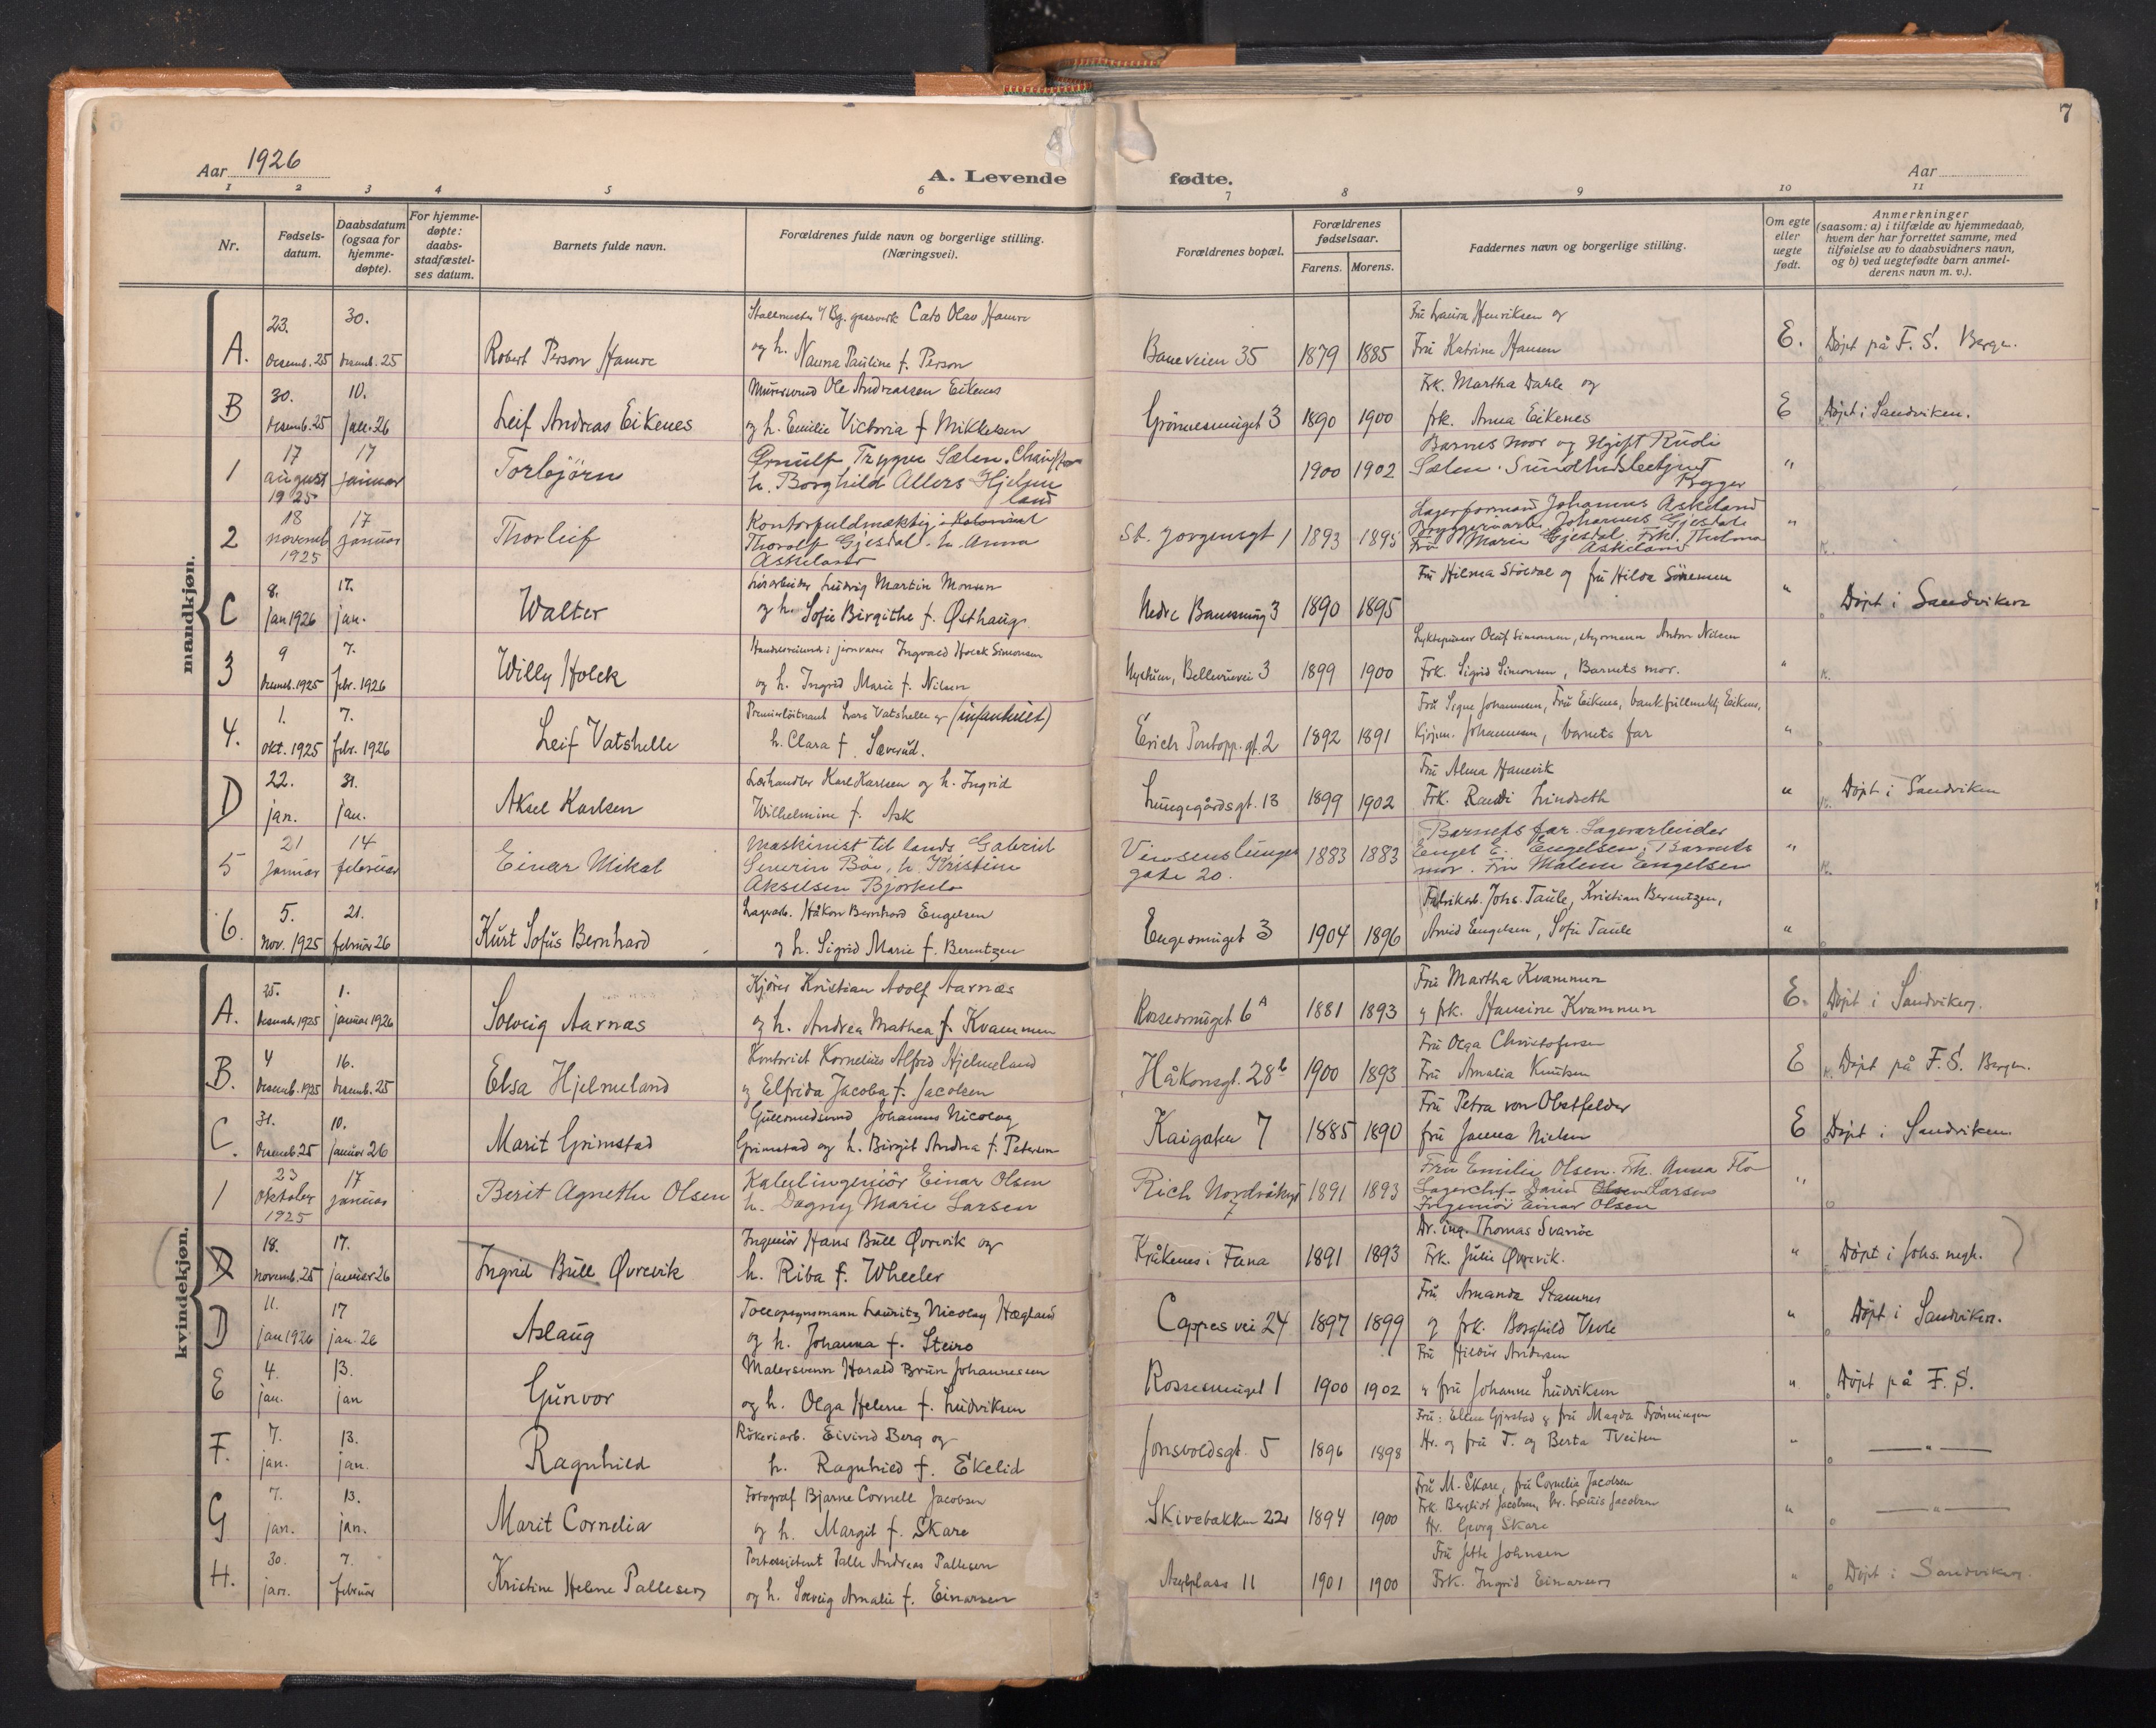 7
Aar 1926
A. Levende fødte.
Aar
1 2 3 4 5 6 7 8 9 10 11
Nr.
Fødsels-
datum.
Daabsdatum
(ogsaa for
hjemme-
døpte).
For hjemme-
døpte:
daabs-
stadfæstel-
ses datum.
Barnets fulde navn.
Forældrenes fulde navn og borgerlige stilling.
(Næringsvei).
Forældrenes bopæl.
Forældrenes
fødselsaar.
Farens. Morens.
Faddernes navn og borgerlige stilling.
Om egte
eller
uegte
født.
Anmerkninger
(saasom: a) i tilfælde av hjemmedaab,
hvem der har forrettet samme, med
tilføielse av to daabsvidners navn,
og b) ved uegtefødte barn anmel-
derens navn m. v.).
mandkjøn.
23. 30. Cato Olav Hamre Fru Laura Henriksen og
A. Desemb. 25 Desemb. 25 Robert Person Hamre og h. Nanna Pauline f. Person Baneveien 35 1879 1885 Fru Katrine Hansen E. Døpt på F. S. Bergen.
30. 10. Murersvend Ole Andreassen Eikenes Frk. Martha Dahle og
B Desemb. 25 Jan. 26 Leif Andreas Eikenes og h. Emilie Victoria f Mikkelsen Grønnesmuget 3 1890 1900 frk. Anna Eikenes E Døpt i Sandviken.
17 17 Ørnulf Trygve Sælen. Chauffør Barnets moor og Ugift Rudi
1 august januar Torbjørn h. Borghild Allers Hjelm 1900 1902 Sælen. "
1925 land Brygger
18 17 Kontorfuldmæktig i Kolonial Lagerformand Johannes Askeland
2 novemb januar Thorleif Thorolf Gjestal. h. Anna St. Jørgensgt 1 1893 1895 Johannes Gjestal "
1925 Askeland Fru Marie Gjestal. Frk. Thelma Askeland K.
8. 17. Ludvig Martin Monsen Fru Hilma Støldal og fru Hilda
C Jan 1926 jan. Walter og h. Sofie Birgithe f. Østhaug. Nedre Banesmug 3 1890 1895 " Døpt i Sandviken
9 7. i jernvarer Ingvald Holck Simonsen Oluf Simonsen, styrmann Anton Nilsen
3 Desemb. 1925 febr. 1926 Willy Holck og h. Ingrid Marie f. Nilsen Bellevuevei 3 1899 1900 Frk. Sigrid Simonsen, Barnets mor. " K.
1. 7. Premierløitnant Lars Vatshelle og (infanteriet) Fru Signe Johannesen, Fru Eikenes, bankfullmekt. Eikenes,
4. okt. 1925 febr. 1926 Leif Vatshelle h. Clara f. Sæverud. Erich Pontopp. gt. 2 1892 1891 Kjøpm. Johannesen, barnets far "
22. 31. Karl Karlsen og h. Ingrid Fru Alma Hanevik
D jan. jan. Aksel Karlsen Wilhelmine f. Ask Lungegårdsgt. 13 1899 1902 Frk. Randi Lindseth " Døpt i Sandviken
21 14 Maskinist til lands Gabriel Barnets far. Lagerarbeider
5 januar februar Einar Mikal Severin Bøe, h. Kristine gate 20. 1883 1883 Engel E. Engelsen, Barnets "
Akselsen Bjørkelo mor. Fru Malene Engelsen K.
5. 21. Lagerarb. Håkon Bernhard Engelsen Fabrikarb. Johs. Taule, Kristian Berentzen,
6. nov. 1925 februar 26 Kurt Sofus Bernhard og h. Sigrid Marie f. Berentzen Engesmuget 3 1904 1896 Arvid Engelsen, Sofie Taule "
kvindekjøn.
25. 1. Kjører Kristian Adolf Aarnæs Fru Martha Kvammen
A. Desember 1925 januar 1926 Solveig Aarnæs og h. Andrea Mathea f. Kvammen Rossesmuget 6A 1881 1893 og frk. Hansine Kvammen E. Døpt i Sandviken.
4 16. Kontorist Kornelius Alfred Hjelmeland Fru Olga Christofersen
B. Desemb. 1925 Desemb. 25 Elsa Hjelmeland og Elfrida Jacoba f. Jacobsen Håkonsgt. 28b 1900 1893 Fru Amalia Knutsen E K. Døpt på F. S. Bergen.
31. 10. Gullsmedsvend Johannes Nicolay Fru Petra von Obstfelder
C. Desemb. 25 januar 26 Marit Grimstad Grimstad og h. Birgit Andrea f. Petersen Kaigaten 7 1885 1890 fru Janna Nielsen E Døpt i Sandviken
23 17 Kabelingeniør Einar Olsen Fru Emilie Olsen. Frk. Anna Flo
1 oktober januar Berit Agnethe Olsen h. Dagny Marie Larsen Rich Nordråksgt 7 1891 1893 Lagerchef David Olsen Larsen "
1925 Ingeniør Einar Olsen
18. 17. Ingeniør Hans Bull Øvrevik og Dr. ing. Thomas Svanøe
D novemb. 25 januar 26 Ingrid Bull Øvrevik h. Riba f. Wheeler Kråkenes i Fana 1891 1893 Frk. Julie Øvrevik. " Døpt i Johs. megh.
11. 17 Tollopsynsmann Lauritz Nicolay Hægland Fru Amanda Stamnes
D jan 1926 jan. 26 Aslaug og h. Johanna f. Steiro Cappes vei 24 1897 1899 og frk. Borghild Vevle " Døpt i Sandviken.
4. 13. Malersvenn Harald Brun Johannessen Fru Hildur Andersen
E jan. jan Gunvor og h. Olga Helene f. Ludviksen Rossesmuget 1 1900 1902 og fru Johanne Ludviksen " Døpt på F. S.
7. 13. Røkeriarb. Eivind Berg og Fru: Ellen Gjerstad og fru Magda Frønningen
F. jan. jan. Ragnhild h. Ragnhild f. Ekelid Jonsvoldsgt. 5 1896 1898 Hr. og fru T. og Berta Tveiten " — " —
7. 13. Fotograf Bjarne Cornell Jacobsen Fru M. Skare, fru Cornelia Jacobsen
G jan. jan. Marit Cornelia og h. Margit f. Skare Skivebakken 22 1894 1900 Frk. Bergliot Jacobsen, hr. Louis Jacobsen " — " —
Hr. Georg Skare
30. 7. Palle Andreas Pallesen Fru Jette Johnsen
H. jan. februar Kristine Helene Pallesen og h. Solveig Amalie f. Einarsen Asylplass 11 1901 1900 Frk. Ingrid Einarsen " Døpt i Sandviken.